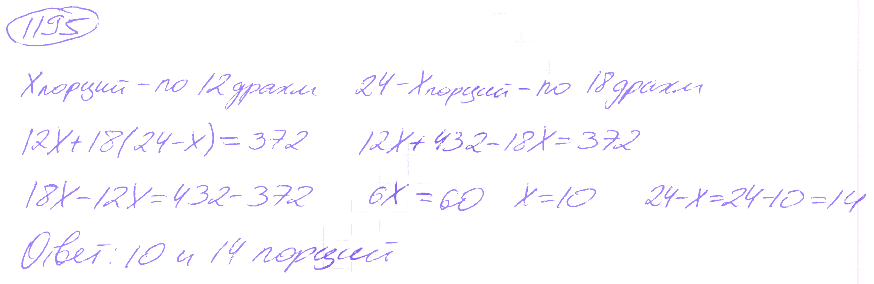 1195
X порций - по 12 драхм 24-X порций - по 18 драхм
12X+18(24-x)=372 12X+432-18X=372
18X-12X=432-372 6X=60 X=10 24-x=24-10=14
Ответ: 10 и 14 порций